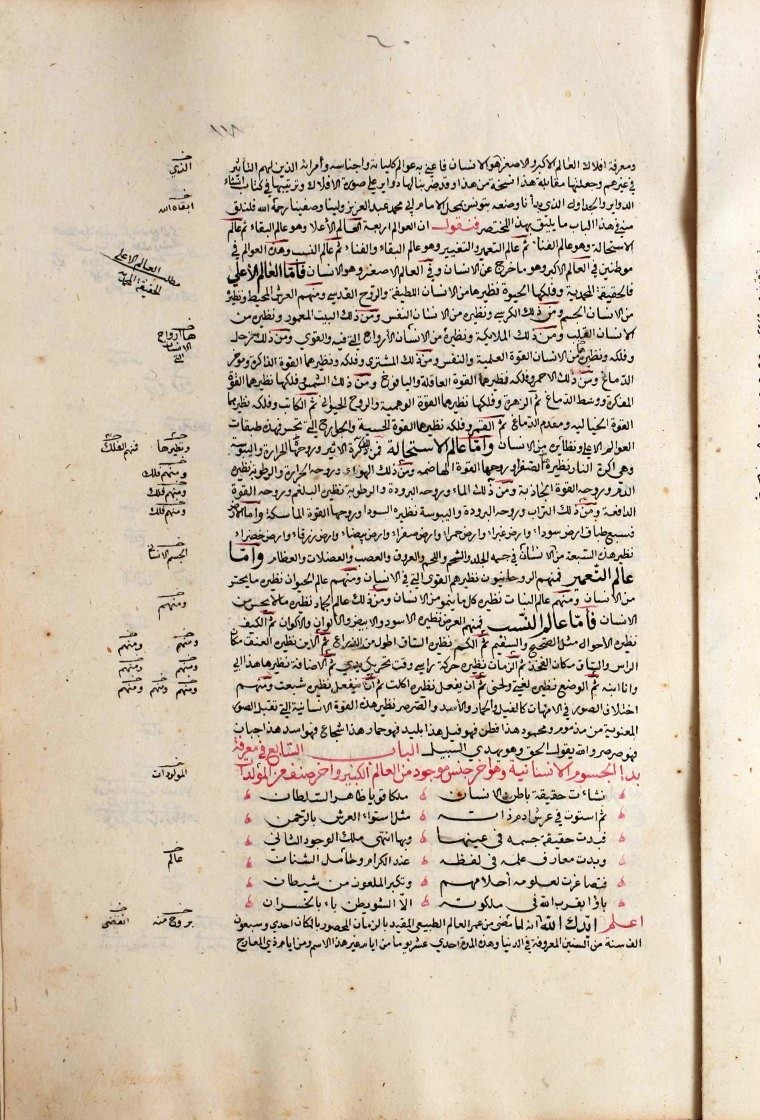 ١١١
ومعرفة افلاك العالم الاكبر والاصغر هو الانسان فاعني به عوالم كلياته واجناسه وأمرائه الذين لهم التأثير
في غيرهم وجعلتها مقابلة هذا نسخة من هذا وقد ضربنا لها دواير على صورة الافلاك وترتيبها في كتاب انشاء
الدواير والجداول الذي بدأنا وضعه بتونس بمحل الامام ابي محمد عبد العزيز ولينا وصفينا رحمة الله فلنلق
منه في هذا الباب ما يليق بهذا المختصر فنقول ان العوالم اربعة العالم الاعلا وهو عالم البقاء ثم عالم
الاستحالة وهو عالم الفناء ثم عالم التعمير والتغيير وهو عالم البقاء والفناء ثم عالم النسب وهذه العوالم في
موطنين في العالم الاكبر وهو ما خرج عن الانسان وفي العالم الاصغر وهو الانسان فأمّا العالم الأعلى
فالحقيقة المحمدية وفلكها الحيوة نظيرها من الانسان اللطيفة والروح القدسي ومنهم العرش المحيط ونظيره
من الانسان الجسم ومن ذلك الكرسي ونظيره من الانسان النفس ومن ذلك البيت المعمور ونظيره من
الانسان القلب ومن ذلك الملايكة ونظيره من الانسان الأرواح التي فيه والقوي ومن ذلك زحل
وفلكه ونظيره من الانسان القوة العلمية والنفس ومن ذلك المشتري وفلكه ونظيرهما القوة الذاكرة ومؤخر
الدماغ ومن ذلك الاحمر وفلكه نظيرهما القوة العاقلة واليافوخ ومن ذلك الشمس وفلكها نظيرهما القوة
المفكرة ووسط الدماغ ثم الزهرة وفلكها نظيرهما القوة الوهمية والروح الحيواني ثم الكاتب وفلكه نظيرهما
القوة الخيالية ومقدم الدماغ ثم القمر وفلكه نظيرهما القوة الحسية والجوارح التي تحس فهذه طبقات
العوالم الاعلى ونظايره من الانسان وأمّا عالم الاستحالة فمن ذلك كرة الاثير وروحها الحرارة واليبوسة
وهي اكرة النار ونظيره الصفرا وروحها القوة الهاضمه ومن ذلك الهواء وروحه الحرارة والرطوبة نظيره
الدم وروحه القوة الجاذبة ومن ذلك الماء وروحه البرودة والرطوبة نظيره البلغم وروحه القوة
الدافعة ومن ذلك التراب وروحه البرودة واليبوسة نظيره السودا وروحها القوة الماسكة واما الارض
فسبع طباق ارض سوداء وارض غبراء وارض حمراء وارض صفراء وارض بيضاء وارض زرقاء وارض خضراء
نظير هذه السبعة من الانسان في جسمه الجلد والشحم واللحم والعروق والعصب والعضلات والعظام وأمّا
عالم التعمير فمنهم الروحانيون نظيرهم القوي التي في الانسان ومنهم عالم الحيوان نظيره ما يحس
من الانسان ومنهم عالم النبات نظيره كل ما ينمو من الانسان ومن ذلك عالم الجماد نظيره ما لا يحس من
الانسان فأمّا عالم النسب فمنهم العرض نظيره الاسود والابيض والألوان والأكوان ثم الكيف
نظيره الأحوال مثل الصحيح والسقيم ثم الكم نظيره الساق اطول من الذراع ثم الأين نظيره العنق مكان
الراس والساق مكان الفخذ ثم الزمان نظيره حركة راسي وقت تحريك يدي ثم الاضافة نظيرها هذا ابي
وانا ابنه ثم الوضع نظيره لغتي ولحني ثم ان يفعل نظيره اكلت ثم أن ينفعل نظيره شبعت ومنهم
اختلاف الصور في الامهات كالفيل والحمار والأسد والصرصر نظير هذه القوة الانسانية التي تقبل الصور
المعنوية من مذموم ومحمود هذا فطن فهو فيل هذا بليد فهو حمار هذا شجاع فهو اسد هذا جبان
فهو صرصر والله يقول الحق وهو يهدي السبيل الباب السابع في معرفة
بدا الجسوم الانسانية وهو آخر جنس موجود من العالم الكبير وآخر صنف من المولدات
نشات حقيقة باطن الانسان ملكا قويا ظاهر السلطان
ثم استوت في عرش ادم ذاته مثل استواء العرش بالرحمن
فبدت حقيقة جسمه في عينها وبها انتهى ملك الوجود الثاني
وبدت معارف علمه في لفظه عند الكرام وحامل الشنان
فتصاغرت لعلومه أحلامهم وتكبر الملعون من شيطان
باؤا بقرب الله في ملكوته الا الشويطن باء بالخسران
اعلم ايدك الله انه لما مضى من عمر العالم الطبيعي المقيد بالزمان المحصور بالمكان احدي وسبعون
الف سنة من السنين المعروفة في الدنيا وهذه المدة احدي عشر يوما من ايام غير هذا الاسم ومن ايام ذي المعارج
الذي
ابقاه الله
مطلب العالم الاعلى
الحقيقة المحمدية
ارواح
الانسان
التي
ونظيرها فمنهم الفلك
ومنهم فلك
ومنهم فلك
ومنهم فلك
الجسم الانساني
ومنهم
ومنهم ومنهم
ومنهم ومنهم
ومنهم ومنهم ومنهم
المولودات
عالم
بروج منه انقضى